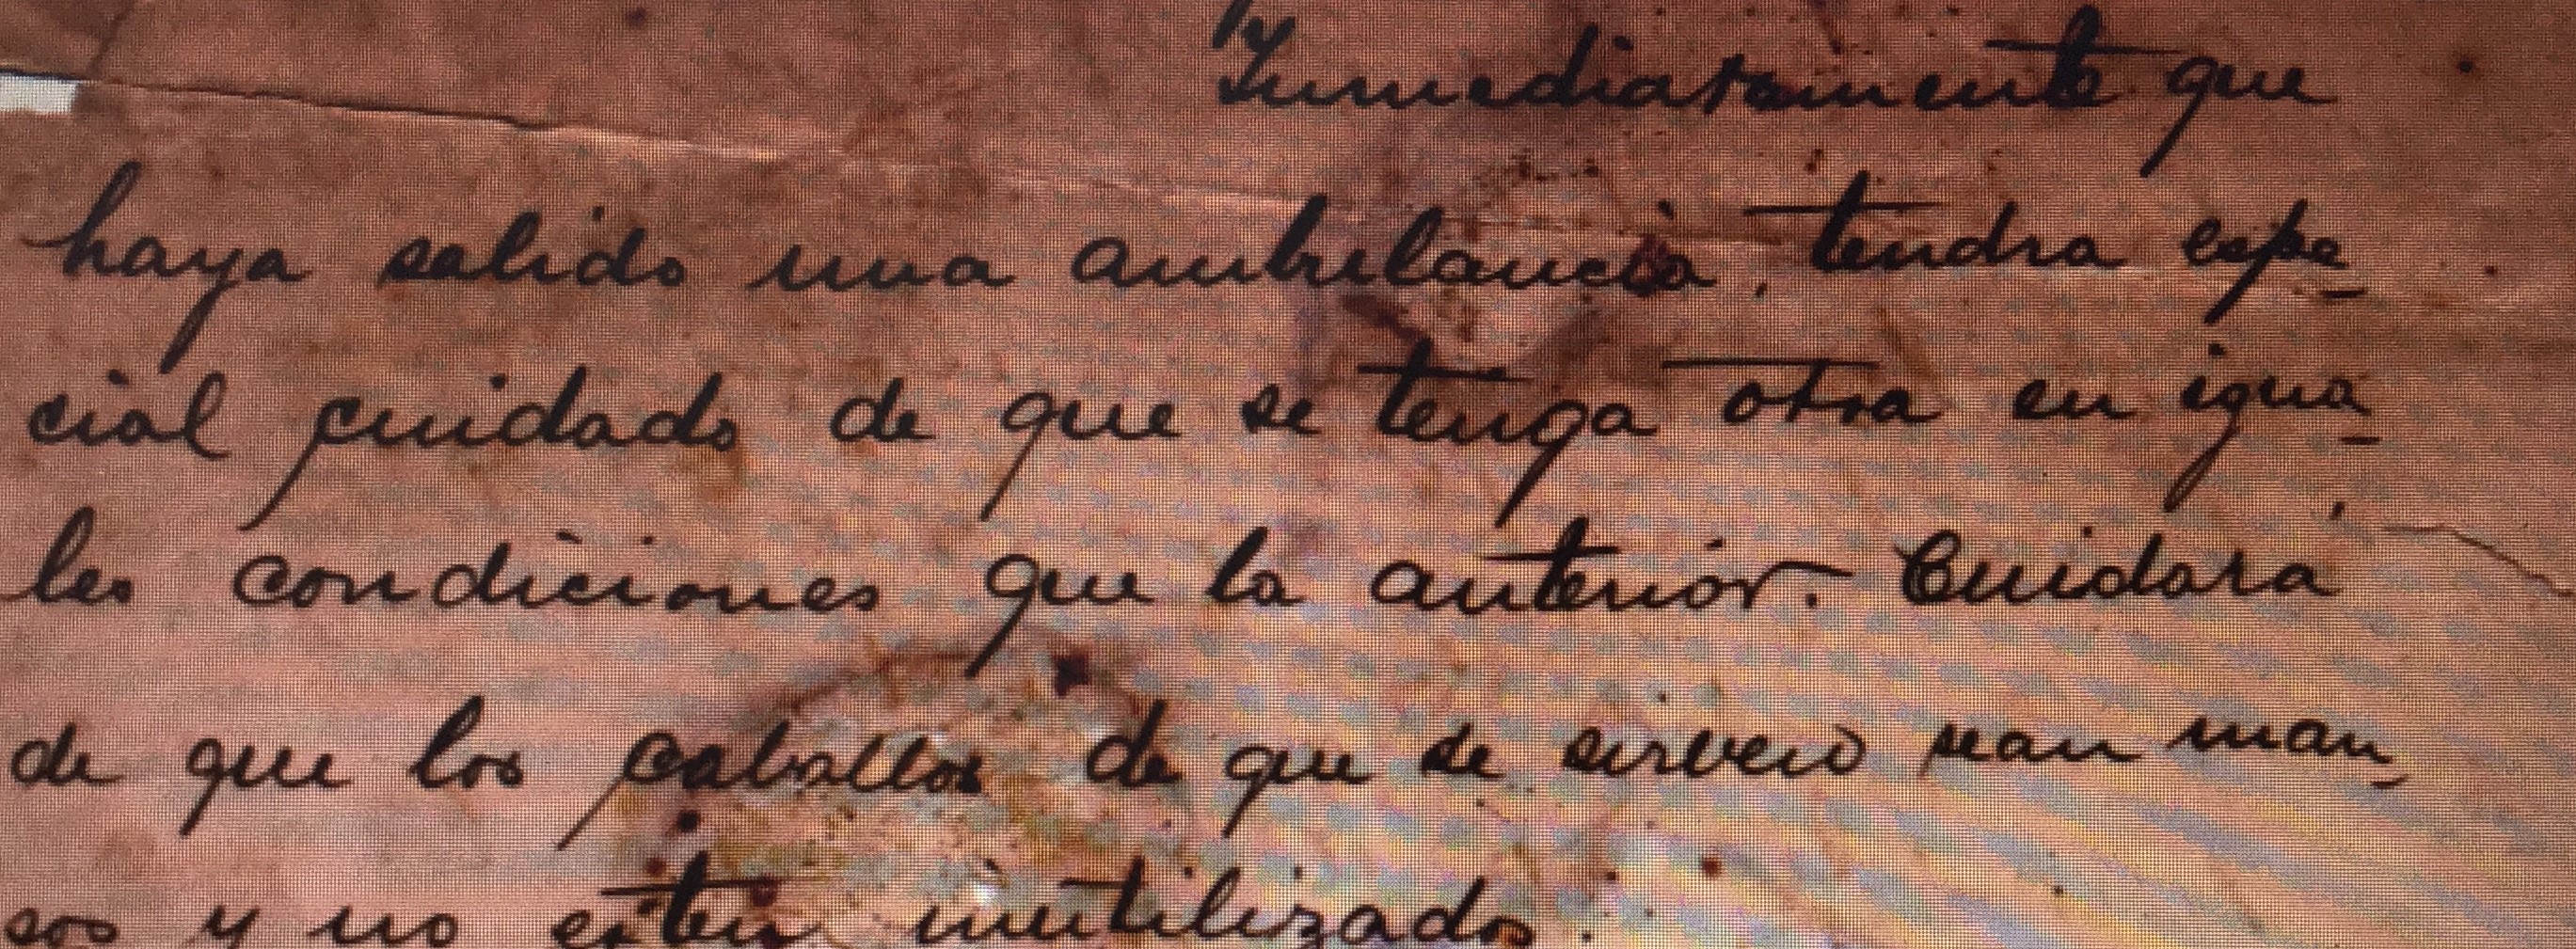 Inmediatamente que
haya salido una ambulancia, tendra espe-
cial cuidado de que se tenga otra en igua-
les condiciones que la anterior. Cuidará
de que los caballos de que se sirvere sean man-
sos y no esten inutilizados.